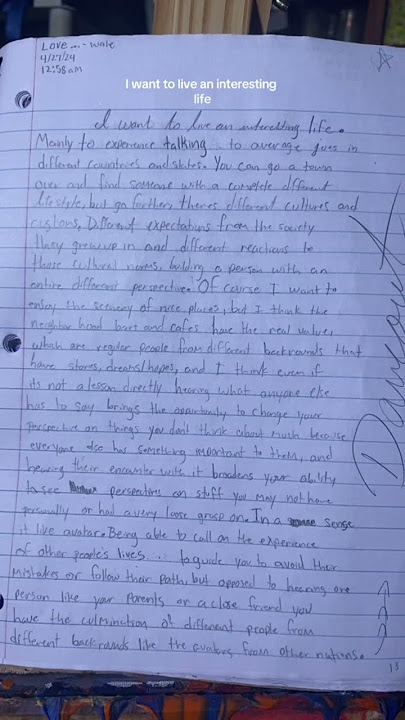 Love...-wave
4/27/24
12:58am
I want to live an interesting
life
I want to live an interesting life.
Mainly to experience talking to average joes in
different countries and states. You can go a town
over and find someone with a complete different
lifestyle, but go farther, theres different cultures and
regions, Different expectations from the society
they grew up in and different reactions to
those cultural norms, building a person with an
entire different perspective. Of course I want to
enjoy the scenery of nice places, but I think the
neighbor hood bars and cafes have the real value,
which are regular people from different backrounds that
have stories, dreams/hopes, and I think even if
its not a lesson directly hearing what anyone else
has to say brings the opportunity to change your
perspective on things you dont think about much because
everyone else has something important to them, and
hearing their encounter with it broadens your ability
to see perspectives on stuff you may not have
personally or had a very loose grasp on. In a sense
it like avatar. Being able to call on the experience
of other people's lives... to guide you to avoid their
mistakes or follow their path, but opposed to hearing one
person like your parents or a close friend you
have the culminction of different people from
different backrounds like the avatars from other nations.
13